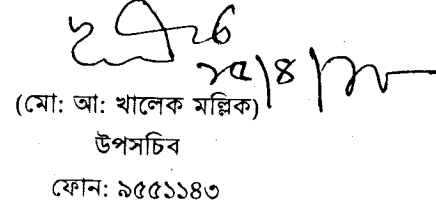 (মো: আ: খালেক মল্লিক)
উপসচিব
ফোন: ৯৫৫১১৪৩